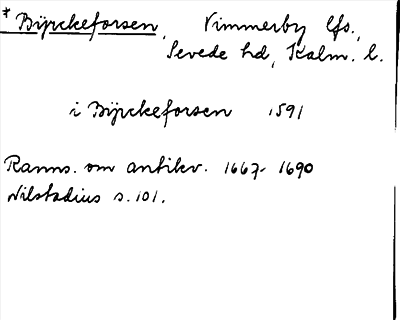 * Bijrckeforsen, Vimmerby lfs.,
Sevede hd, Kalm. l.
i Bijrckeforsen 1591
Ranns. om antikv. 1667-1690
Nilstadius s. 101.